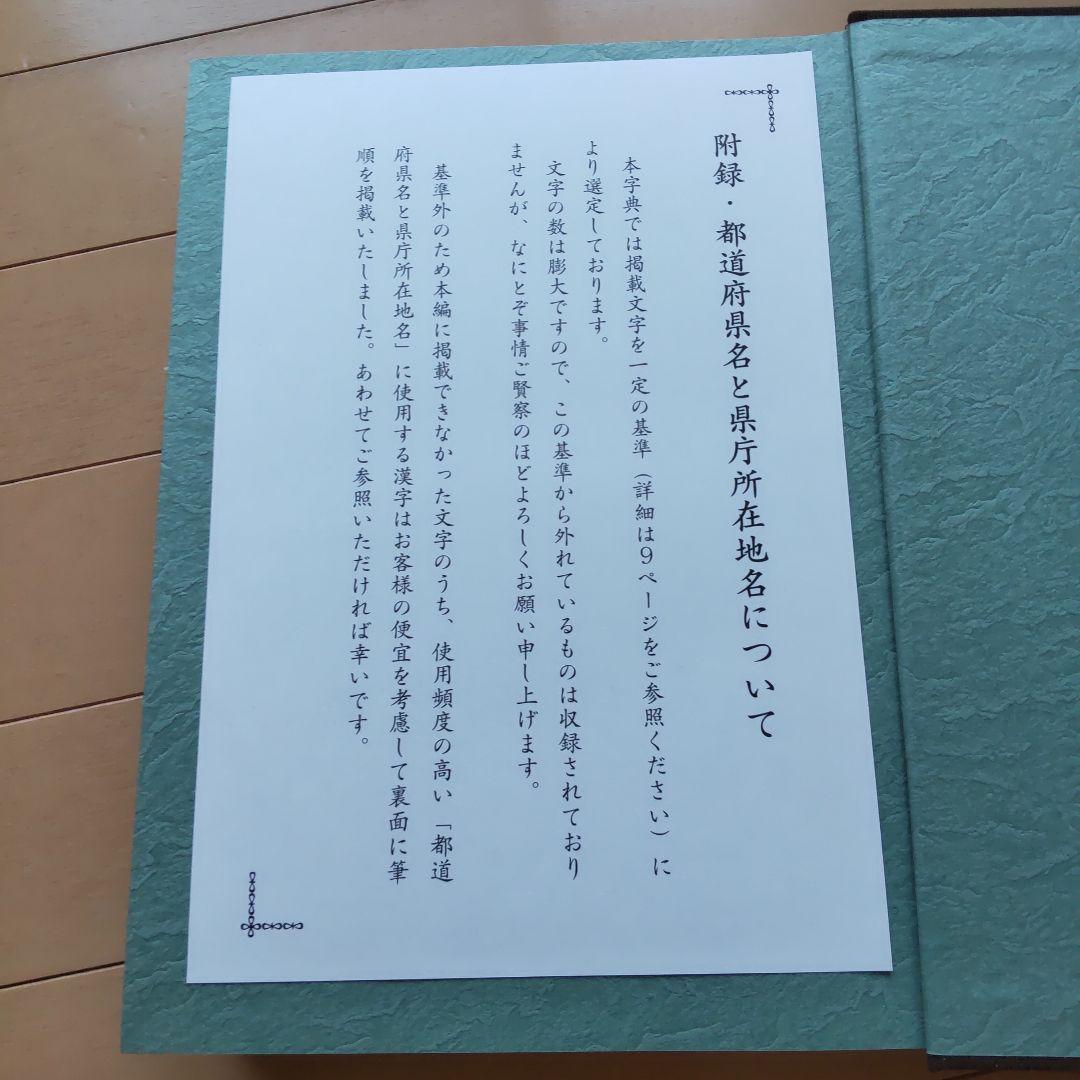 附録・都道府県名と県庁所在地名について
本字典では掲載文字を一定の基準（詳細は9ページをご参照ください）に
より選定しております。
文字の数は膨大ですので、この基準から外れているものは収録されており
ませんが、なにとぞ事情ご賢察のほどよろしくお願い申し上げます。
基準外のため本編に掲載できなかった文字のうち、使用頻度の高い「都道
府県名と県庁所在地名」に使用する漢字はお客様の便宜を考慮して裏面に筆
順を掲載いたしました。あわせてご参照いただければ幸いです。